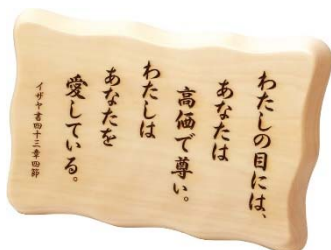 わたしの目には、
あなたは
高価で尊い。
わたしは
あなたを
愛している。
イザヤ書四十三章四節